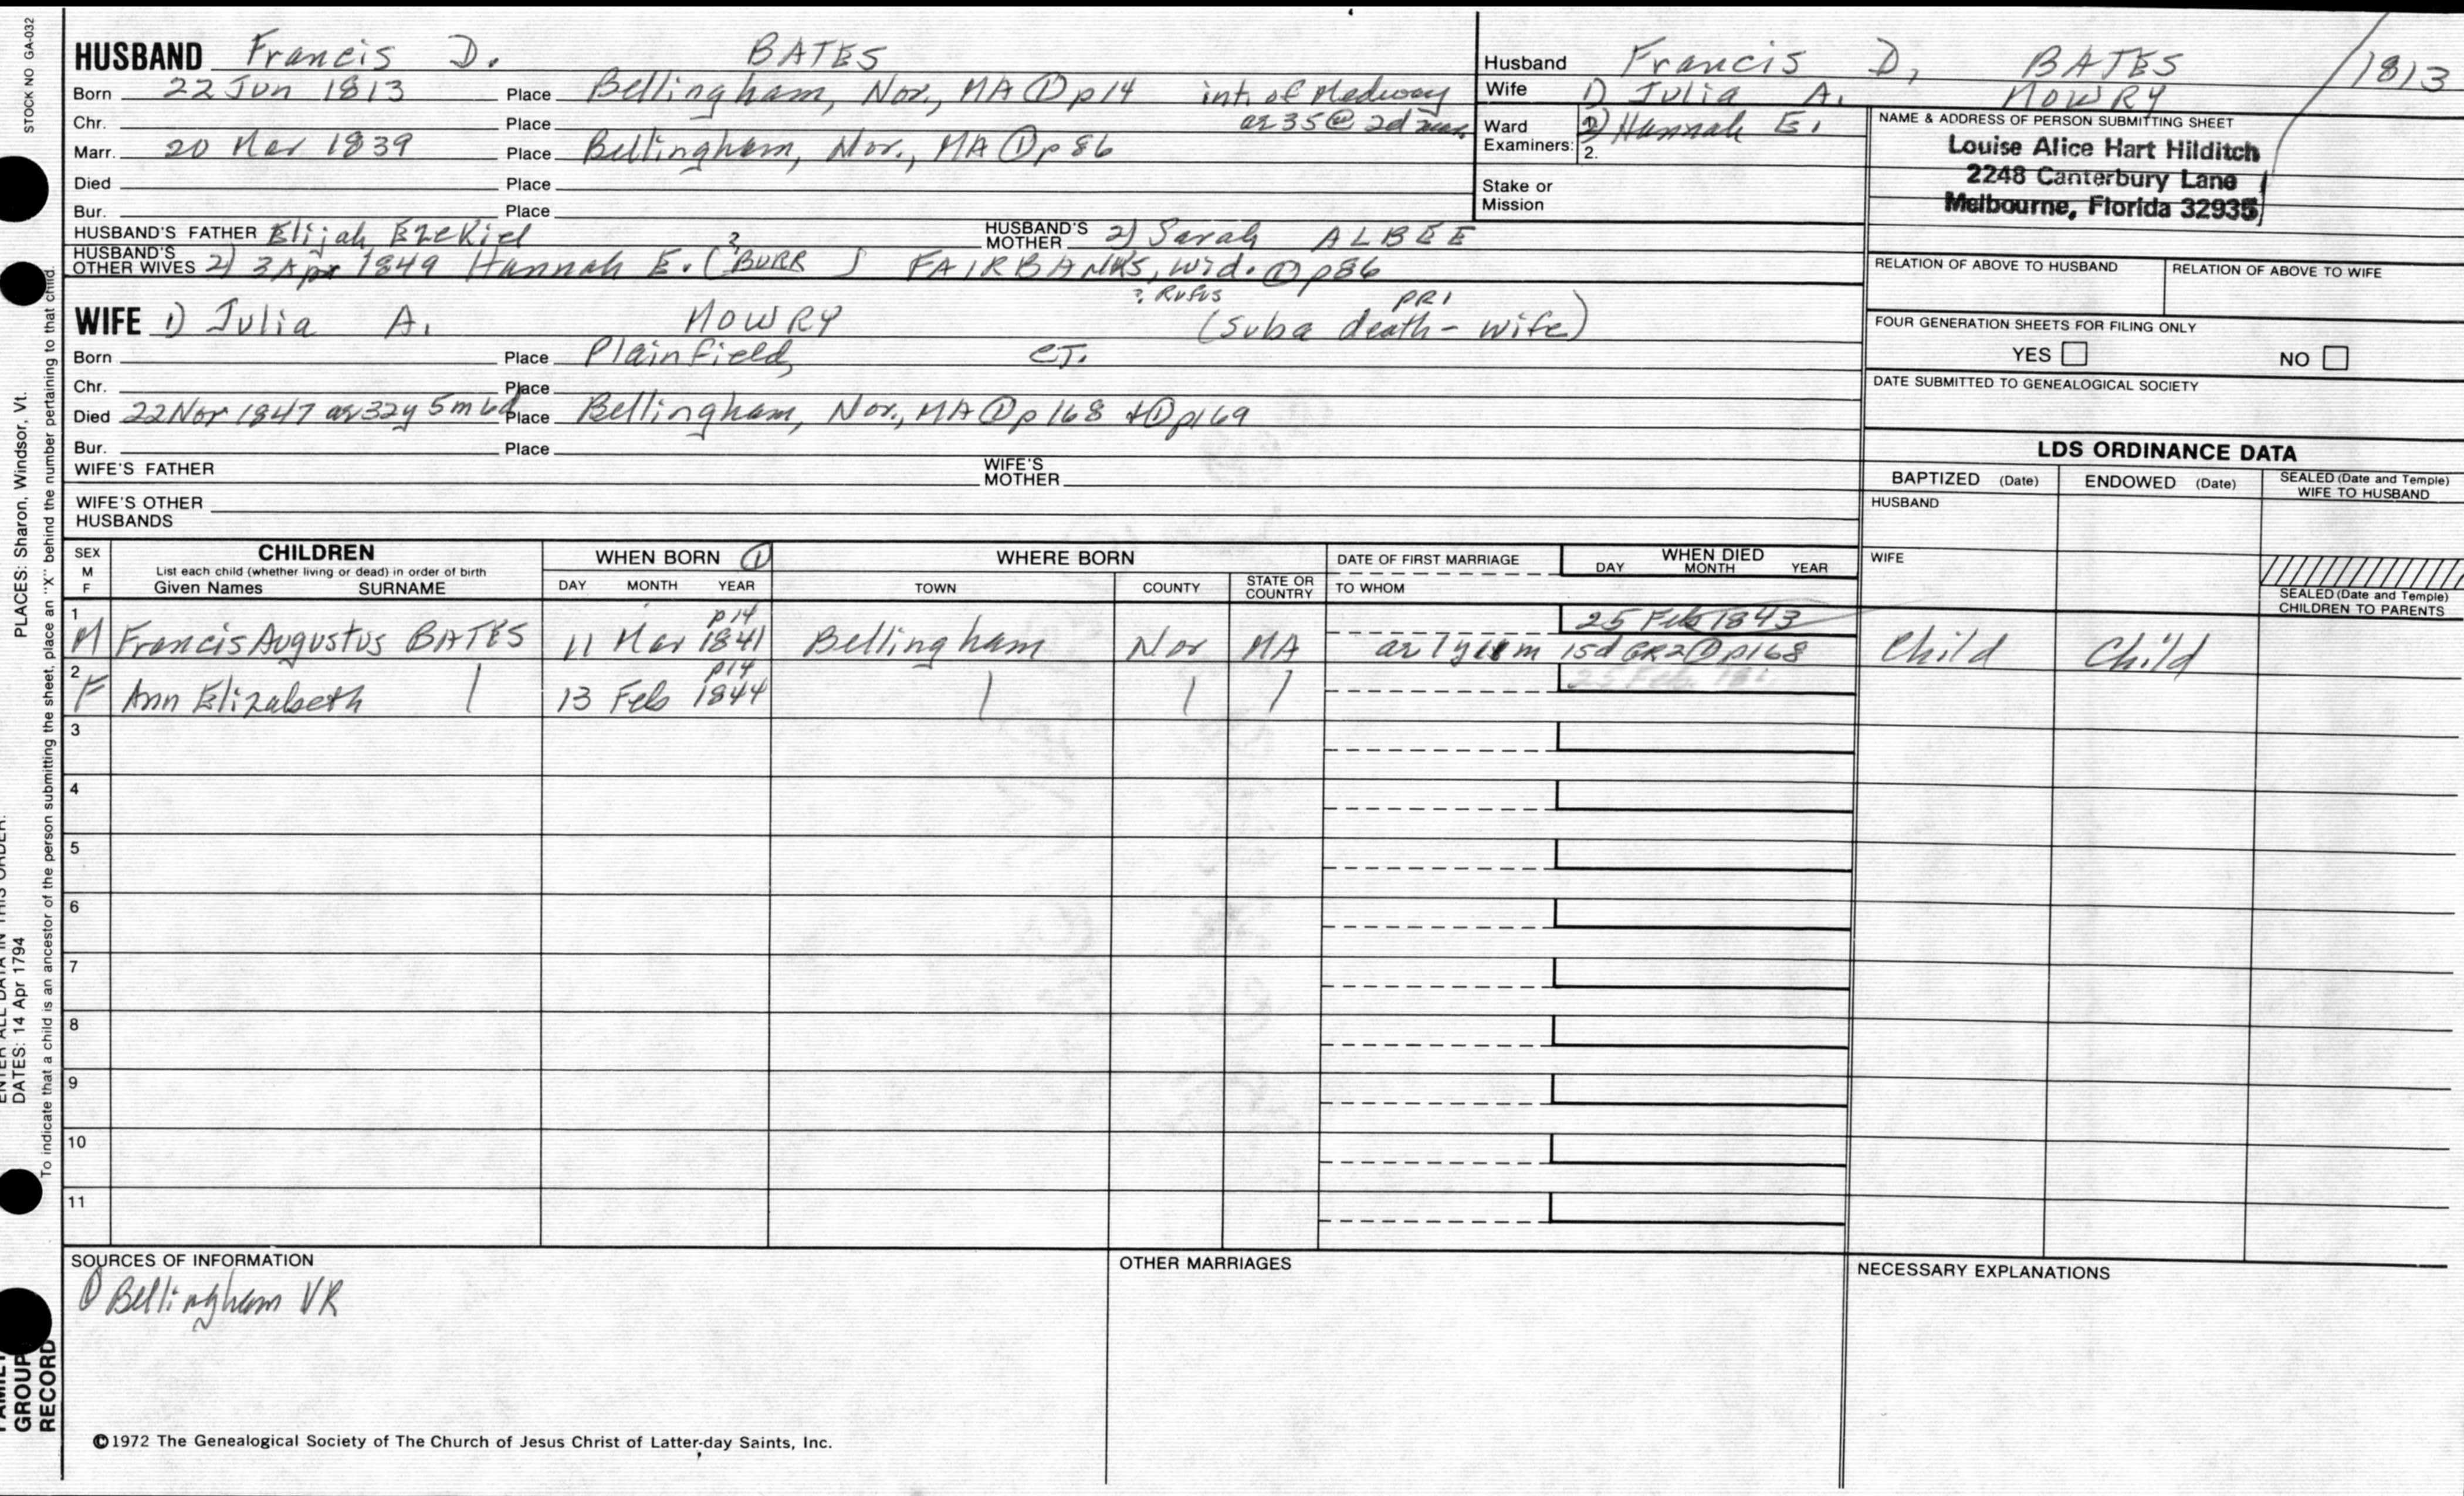 STOCK NO GA-032
PLACES: Sharon, Windsor, Vt.
DATES: 14 Apr 1794
To indicate that a child is an ancestor of the person submitting the sheet, place an "X" behind the number pertaining to that child.
GROUP
RECORD
HUSBAND Francis D. BATES
Born 22 Jun 1813 Place Bellingham, Nor., MA ① p14 int. of Medway
Chr. Place ae 35 @ 2d mar.
Marr. 20 Mar 1839 Place Bellingham, Nor., MA ① p 86
Died Place
Bur. Place
HUSBAND'S FATHER Elijah Ezekiel HUSBAND'S MOTHER 2) Sarah ALBEE
HUSBAND'S OTHER WIVES 2) 3 Apr 1849 Hannah E. (BURR ?) FAIRBANKS, wid. ① p86
? Rufus
WIFE 1) Julia A. MOWRY (Suba death - wife)
PRI
Born Place Plainfield, CT.
Chr. Place
Died 22 Nov 1847 ae 32y 5m 6d Place Bellingham, Nor., MA ① p 168 + ① p169
Bur. Place
WIFE'S FATHER WIFE'S MOTHER
WIFE'S OTHER HUSBANDS
Husband Francis D. BATES / 1813
Wife 1) Julia A. MOWRY
Ward Examiners: 2) Hannah E.
2.
Stake or Mission
NAME & ADDRESS OF PERSON SUBMITTING SHEET
Louise Alice Hart Hilditch
2248 Canterbury Lane
Melbourne, Florida 32935
RELATION OF ABOVE TO HUSBAND RELATION OF ABOVE TO WIFE
FOUR GENERATION SHEETS FOR FILING ONLY
YES NO
DATE SUBMITTED TO GENEALOGICAL SOCIETY
LDS ORDINANCE DATA
BAPTIZED (Date) ENDOWED (Date) SEALED (Date and Temple) WIFE TO HUSBAND
HUSBAND
WIFE
SEALED (Date and Temple) CHILDREN TO PARENTS
SEX M F CHILDREN WHEN BORN ① WHERE BORN DATE OF FIRST MARRIAGE WHEN DIED
List each child (whether living or dead) in order of birth
Given Names SURNAME DAY MONTH YEAR TOWN COUNTY STATE OR COUNTRY TO WHOM DAY MONTH YEAR
1 p14 25 Feb 1843
M Francis Augustus BATES 11 Mar 1841 Bellingham Nor MA ae 1y 11m 15d GR2 ① p168 Child Child
2 p14
F Ann Elizabeth 13 Feb 1844
3
4
5
6
7
8
9
10
11
SOURCES OF INFORMATION OTHER MARRIAGES NECESSARY EXPLANATIONS
① Bellingham VR
©1972 The Genealogical Society of The Church of Jesus Christ of Latter-day Saints, Inc.